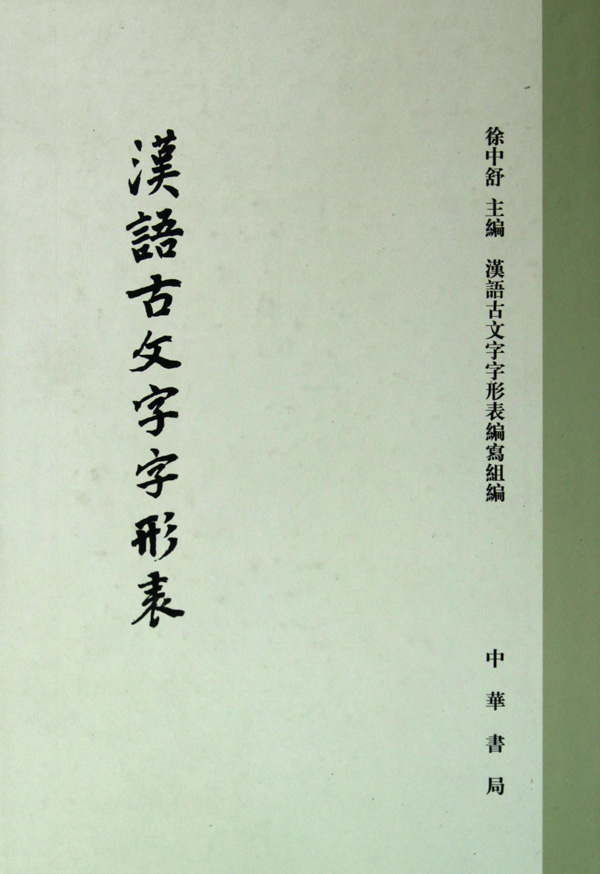 徐中舒 主編 漢語古文字字形表編寫組編
中華書局
漢語古文字字形表